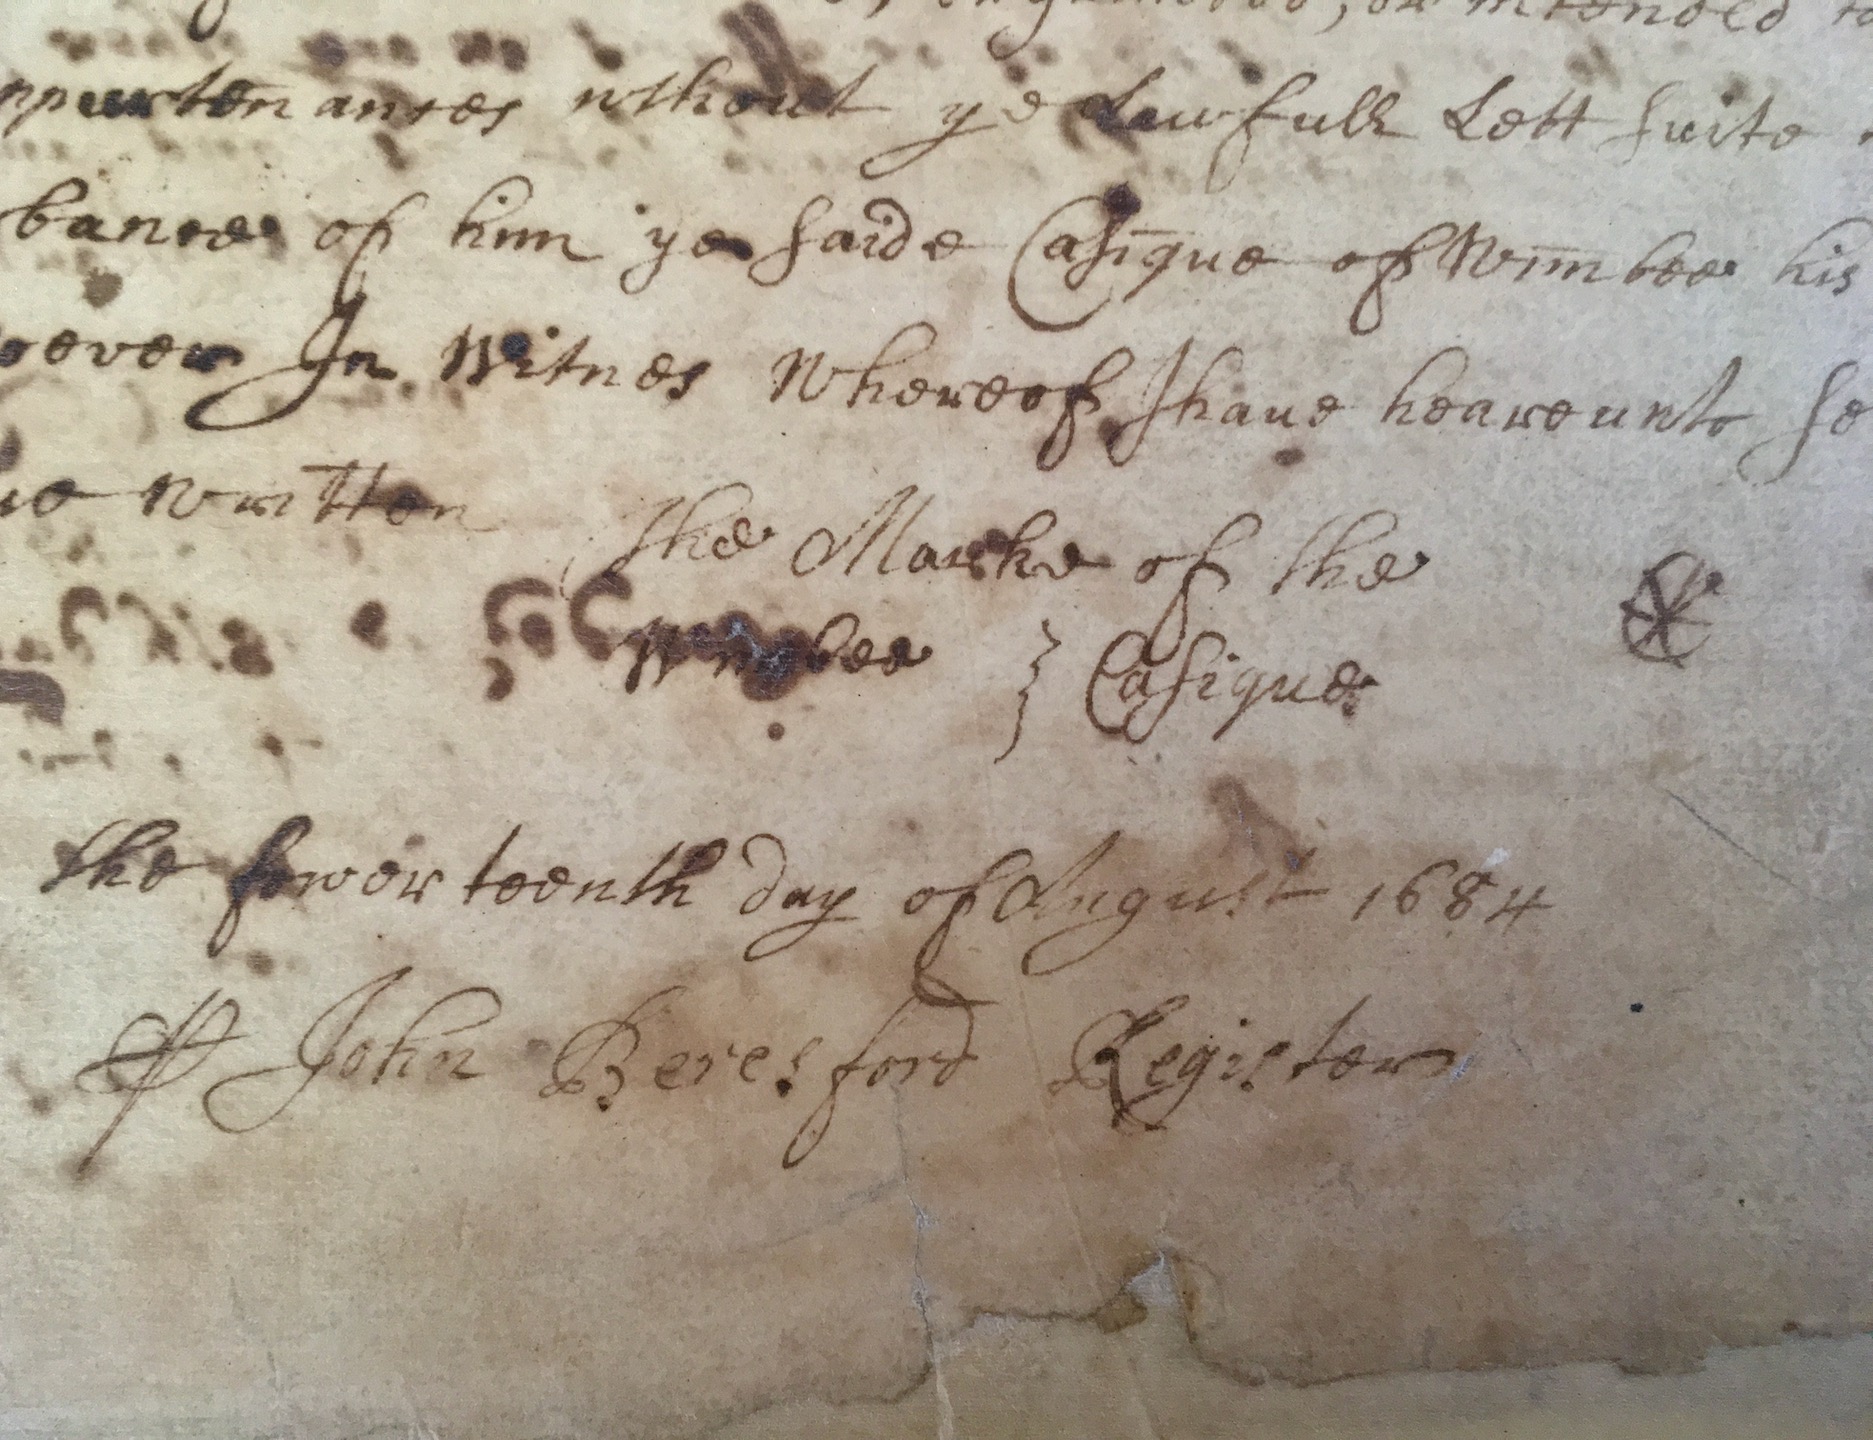 or intended
ppurtenances wthout ye Lawfull Lett suite
bance of him ye saide Casique of Wimbee his
oever In Witnes Whereof I haue heareunto se
ue Written The Marke of the
Wimbee } Casique
the fowerteenth day of August 1684
P John Beresford Register